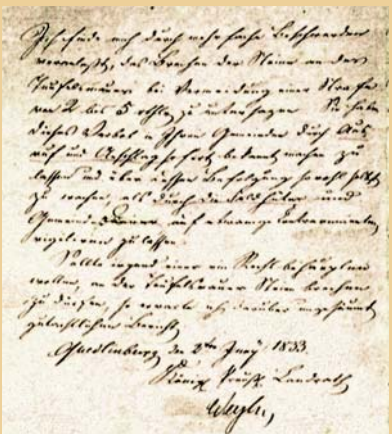 Ich finde mich durch mehrfache Beschwerden
veranlaßt, das Brechen der Steine an der
Teufelsmauer bei Vermeidung einer Strafe
von 2 bis 5 rthlr zu untersagen. Sie haben
dieses Verbot in Ihren Gemeinden durch Aus
ruf und Anschlag sofort bekannt machen zu
lassen und über dessen Befolgung sowohl selbst
zu wachen, als durch die Feldhüter und
Gemeinde Diener auf etwaige Contravenienten
vigiliren zu lassen.
Sollte irgend einer ein Recht behaupten
wollen, an der Teufelsmauer Steine brechen
zu dürfen, so erwarte ich darüber ungesäumt
gutachtlichen Bericht.
Quedlinburg, den 2ten 1833.
Königl. Preuß. Landrath
Weyhe